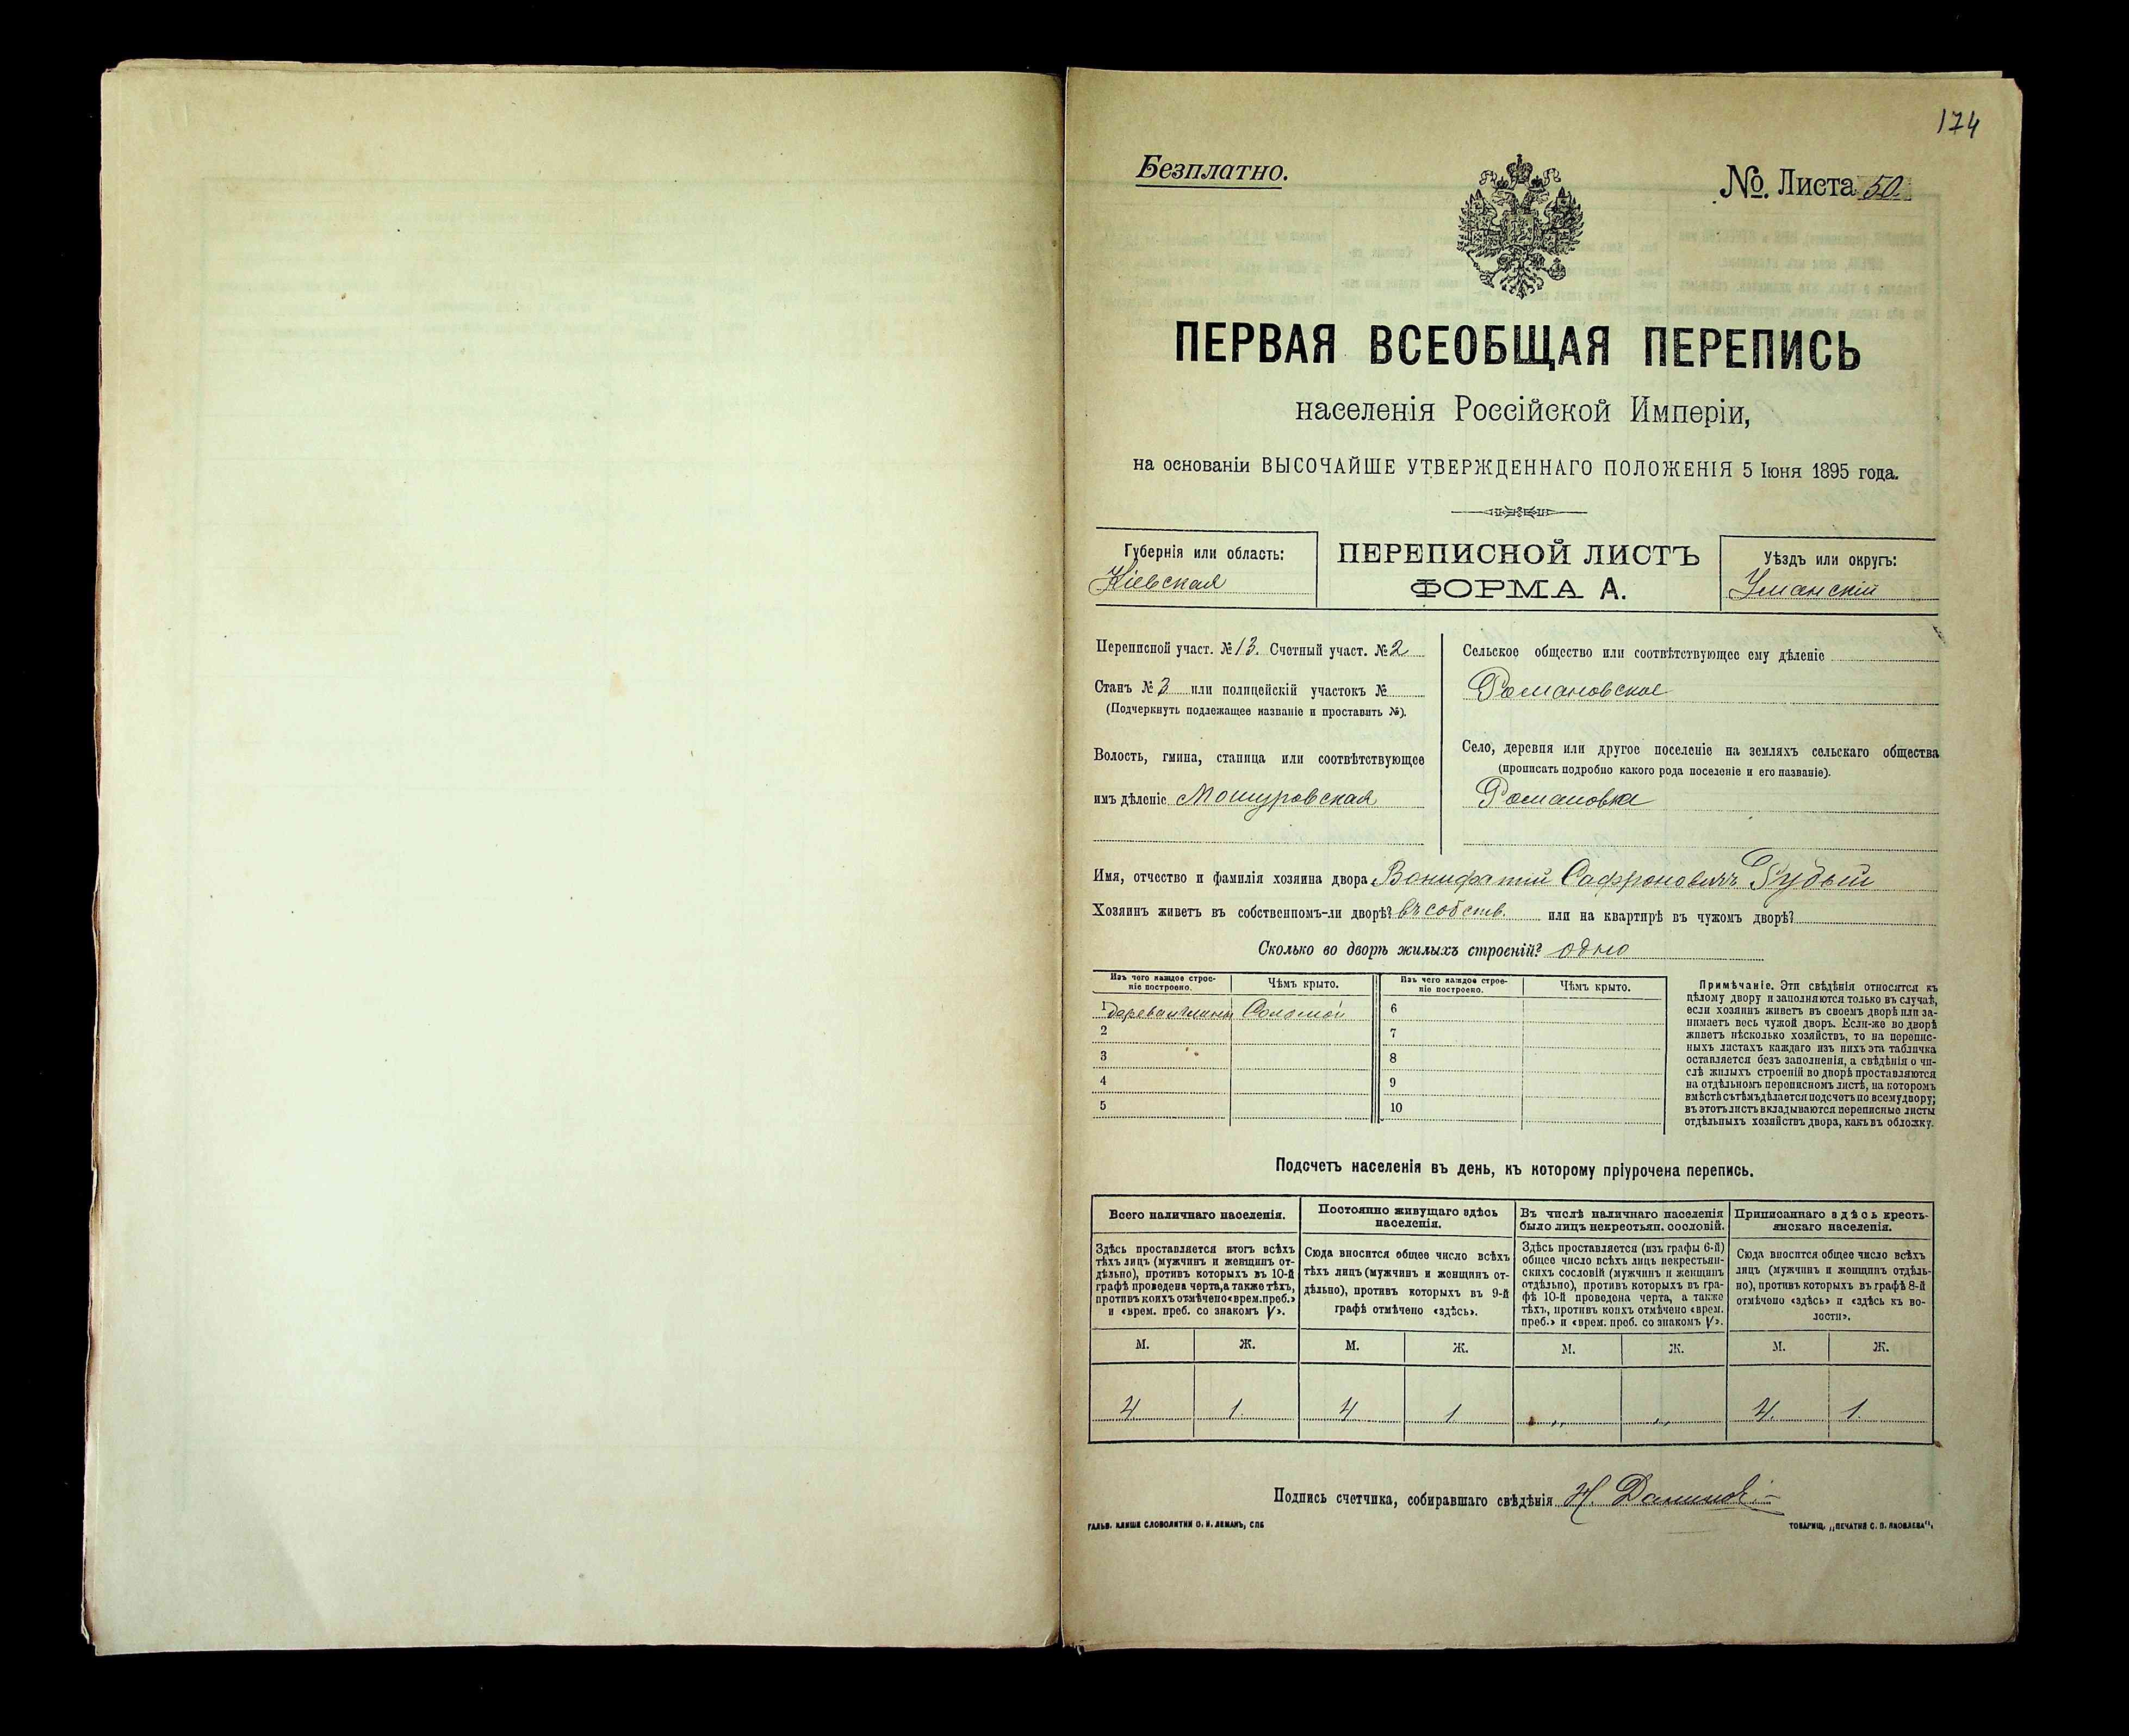 174
Безплатно.
№. Листа 50.
ПЕРВАЯ ВСЕОБЩАЯ ПЕРЕПИСЬ
населенія Россійской Имперіи,
на основаніи ВЫСОЧАЙШЕ УТВЕРЖДЕННАГО ПОЛОЖЕНІЯ 5 Іюня 1895 года.
Губернія или область:
Кіевская
ПЕРЕПИСНОЙ ЛИСТЪ
ФОРМА А.
Уѣздъ или округъ:
Уманскій
Переписной участ. № 13. Счетный участ. № 2
Станъ № 3 или полицейскій участокъ №
(Подчеркнуть подлежащее названіе и проставить №).
Волость, гмина, станица или соотвѣтствующее
имъ дѣленіе Мошуровская
Сельское общество или соотвѣтствующее ему дѣленіе
Романовское
Село, деревня или другое поселеніе на земляхъ сельскаго общества
(прописать подробно какого рода поселеніе и его названіе).
Романовка
Имя, отчество и фамилія хозяина двора Вонифатій Сафроновичъ
Хозяинъ живетъ въ собственномъ-ли дворѣ? въ собств. или на квартирѣ въ чужомъ дворѣ?
Сколько во дворѣ жилыхъ строеній? одно
Изъ чего каждое строе-
ніе построено.
Чѣмъ крыто.
Изъ чего каждое строе-
ніе построено.
Чѣмъ крыто.
1 Соломой
2
3
4
5
6
7
8
9
10
Примѣчаніе. Эти свѣдѣнія относятся къ
цѣлому двору и заполняются только въ случаѣ,
если хозяинъ живетъ въ своемъ дворѣ или за-
нимаетъ весь чужой дворъ. Если-же во дворѣ
живетъ нѣсколько хозяйствъ, то на перепис-
ныхъ листахъ каждаго изъ нихъ эта табличка
оставляется безъ заполненія, а свѣдѣнія о чи-
слѣ жилыхъ строеній во дворѣ проставляются
на отдѣльномъ переписномъ листѣ, на которомъ
вмѣстѣ съ тѣмъ дѣлается подсчетъ по всему двору;
въ этотъ листъ вкладываются переписные листы
отдѣльныхъ хозяйствъ двора, какъ въ обложку.
Подсчетъ населенія въ день, къ которому пріурочена перепись.
Всего наличнаго населенія.
Здѣсь проставляется итогъ всѣхъ
тѣхъ лицъ (мужчинъ и женщинъ от-
дѣльно), противъ которыхъ въ 10-й
графѣ проведена черта, а также тѣхъ,
противъ коихъ отмѣчено «врем. преб.»
и «врем. преб. со знакомъ V».
Постоянно живущаго здѣсь
населенія.
Сюда вносится общее число всѣхъ
тѣхъ лицъ (мужчинъ и женщинъ от-
дѣльно), противъ которыхъ въ 9-й
графѣ отмѣчено «здѣсь».
Въ числѣ наличнаго населенія
было лицъ некрестьян. сословій.
Здѣсь проставляется (изъ графы 6-й)
общее число всѣхъ лицъ некрестьян-
скихъ сословій (мужчинъ и женщинъ
отдѣльно), противъ которыхъ въ гра-
фѣ 10-й проведена черта, а также
тѣхъ, противъ коихъ отмѣчено «врем.
преб.» и «врем. преб. со знакомъ V».
Приписаннаго здѣсь кресть-
янскаго населенія.
Сюда вносится общее число всѣхъ
лицъ (мужчинъ и женщинъ отдѣль-
но), противъ которыхъ въ графѣ 8-й
отмѣчено «здѣсь» и «здѣсь къ во-
лости».
М. Ж. М. Ж. М. Ж. М. Ж.
4 1. 4 1 „ „ 4. 1.
Подпись счетчика, собиравшаго свѣдѣнія
ГАЛЬВ. КЛИШЕ СЛОВОЛИТНИ О. И. ЛЕМАНЪ, СПБ
ТОВАРИЩ. „ПЕЧАТНЯ С. П. ЯКОВЛЕВА“.